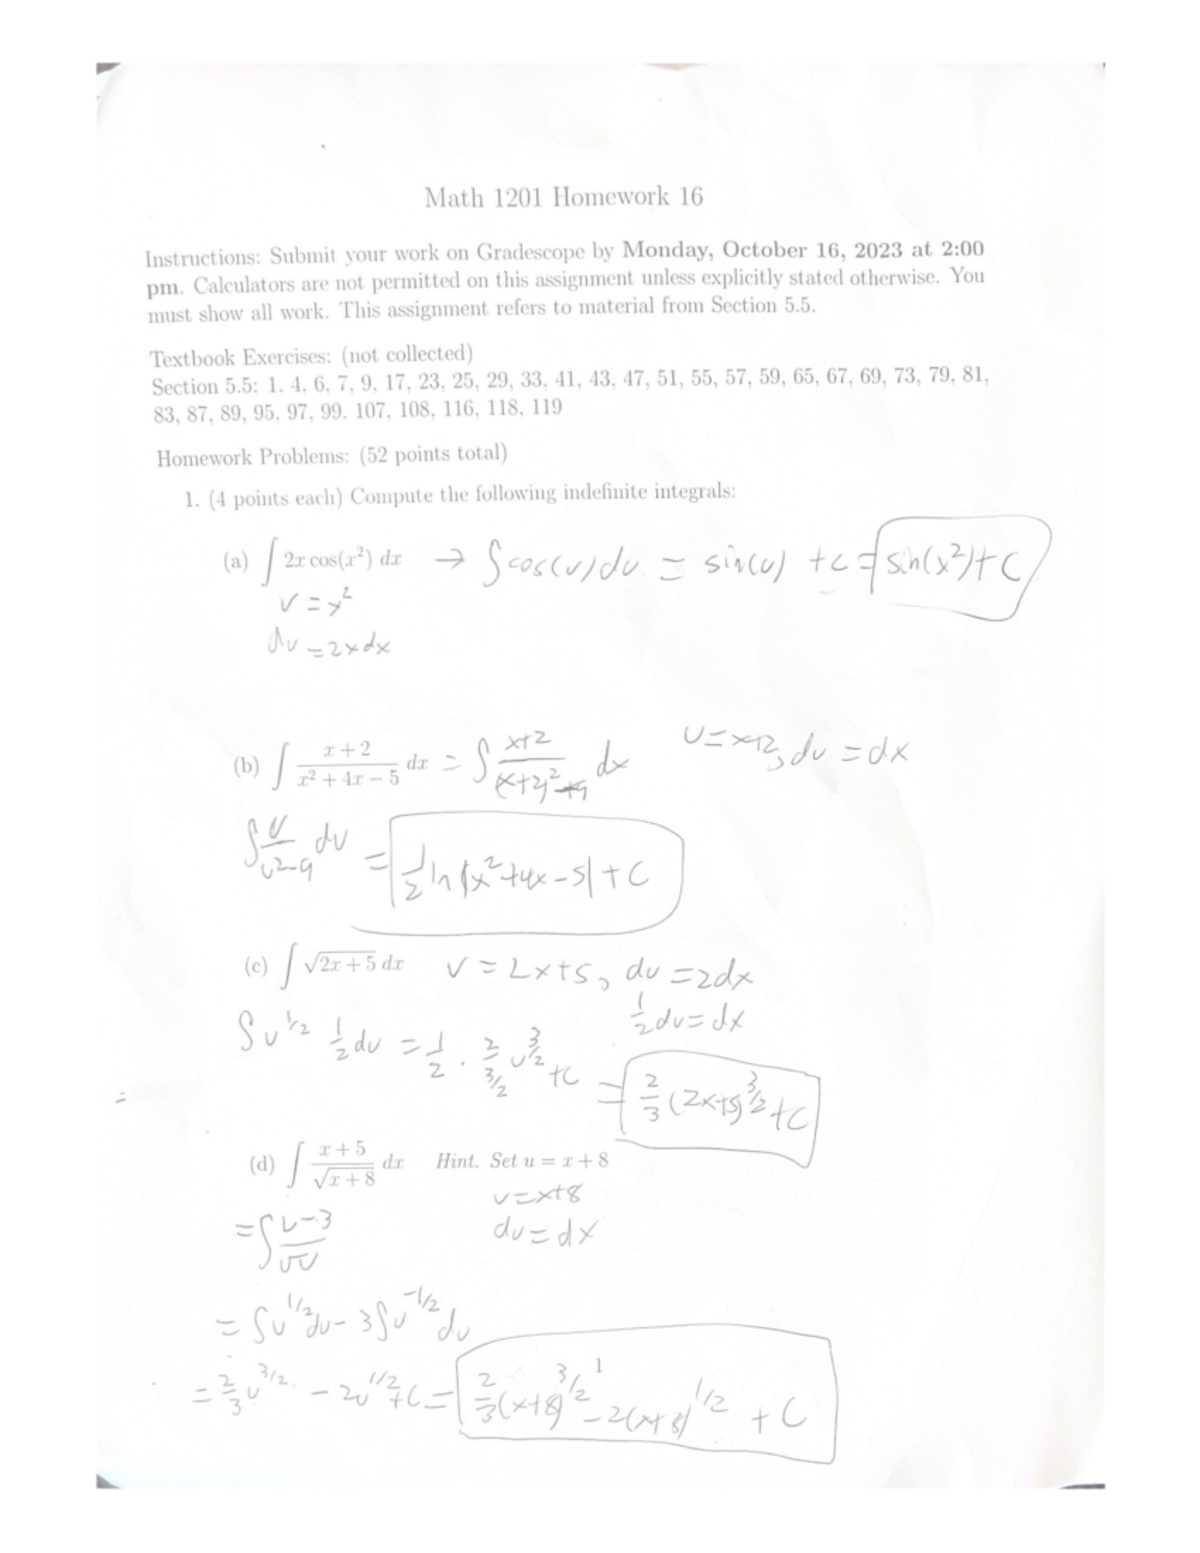 Math 1201 Homework 16
Instructions: Submit your work on Gradescope by Monday, October 16, 2023 at 2:00
pm. Calculators are not permitted on this assignment unless explicitly stated otherwise. You
must show all work. This assignment refers to material from Section 5.5.
Textbook Exercises: (not collected)
Section 5.5: 1, 4, 6, 7, 9, 17, 23, 25, 29, 33, 41, 43, 47, 51, 55, 57, 59, 65, 67, 69, 73, 79, 81,
83, 87, 89, 95, 97, 99. 107, 108, 116, 118, 119
Homework Problems: (52 points total)
1. (4 points each) Compute the following indefinite integrals:
(a) ∫ 2x cos(x²) dx → ∫cos(u)du = sin(u) +C = sin(x²)+C
u = x²
du = 2xdx
(b) ∫ (x + 2)/(x² + 4x − 5) dx = ∫ (x+2)/((x+2)²-9) dx u=x+2, du = dx
∫ u/(u²-9) du = 1/2 ln|x²+4x-5| + C
(c) ∫ √(2x + 5) dx u = 2x+5, du = 2dx
1/2 du = dx
∫u^(1/2) 1/2 du = 1/2 · 2/(3/2) u^(3/2) +C = 2/3 (2x+5)^(3/2) +C
(d) ∫ (x + 5)/√(x + 8) dx Hint. Set u = x + 8
u=x+8
=∫ (u-3)/√u du = dx
= ∫u^(1/2)du - 3∫u^(-1/2) du
= 2/3 u^(3/2) - 2u^(1/2) +C = 2/3 (x+8)^(3/2) - 2(x+8)^(1/2) + C
1